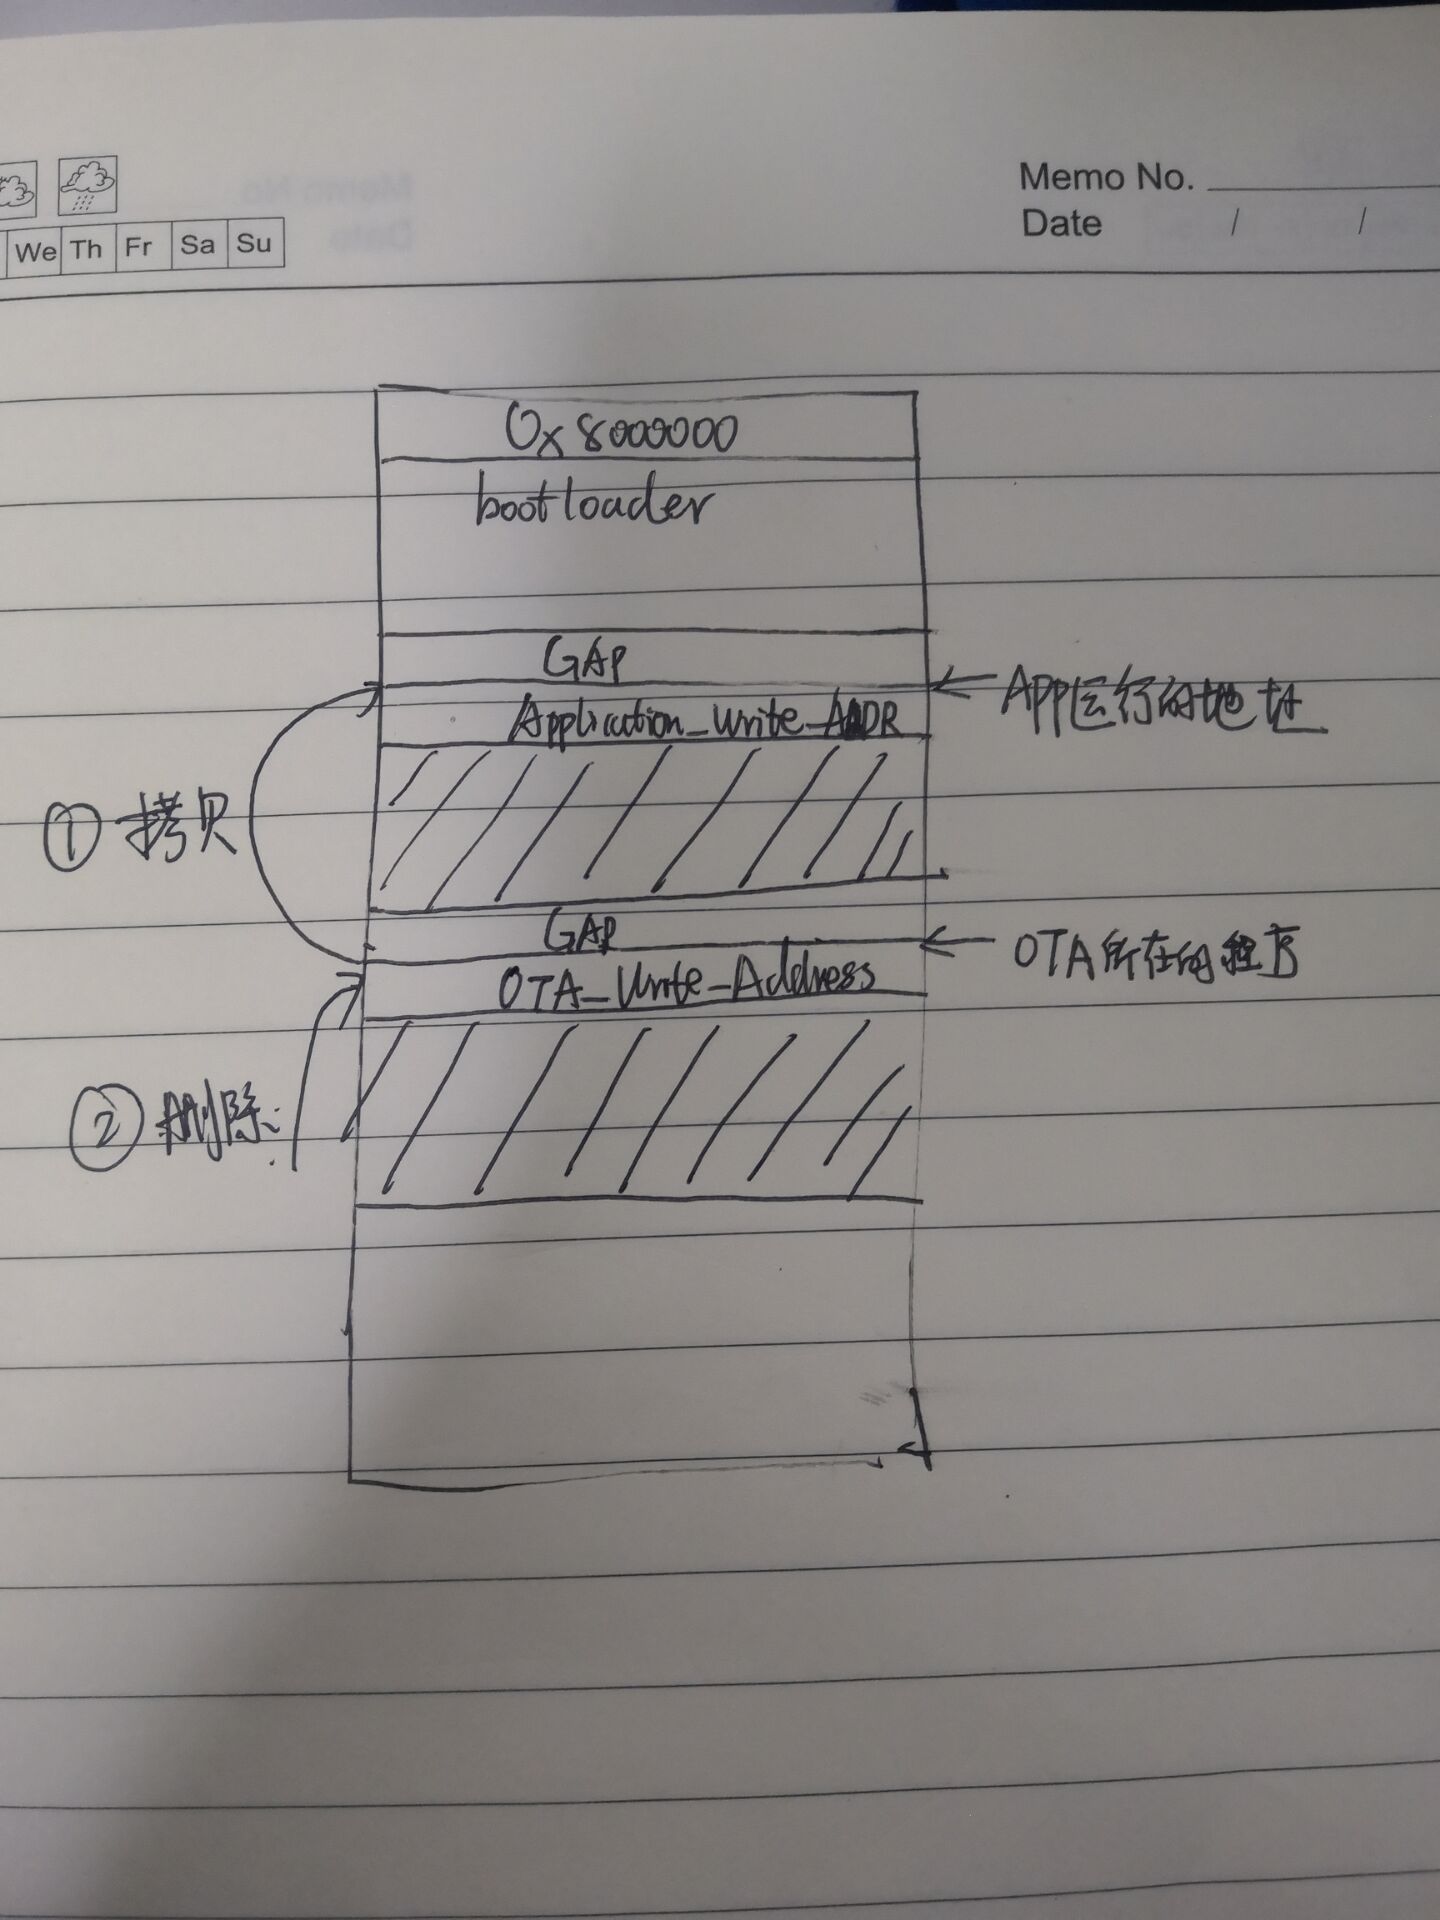 Memo No.
Date / /
We Th Fr Sa Su
0x8000000
bootloader
GAP
Application_Write_ADDR
APP运行的地址
① 拷贝
GAP
OTA所在的程序
OTA_Write_Address
② 删除